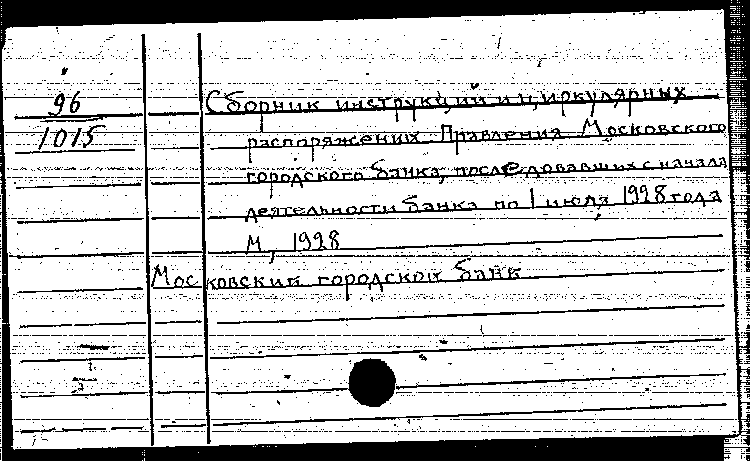 96
1015
Сборник инструкций и циркулярных
распоряжений Правления Московского
городского банка, последовавших с начала
деятельности банка по 1 июля 1928 года
М, 1928
Московский городской банк